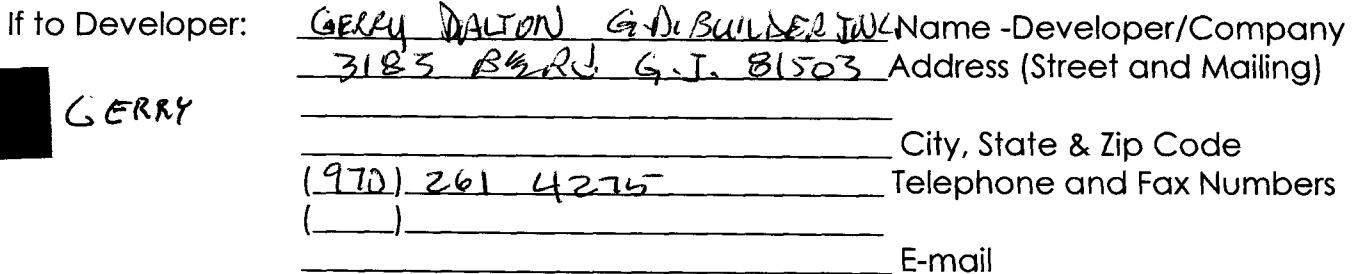 If to Developer: GERRY DALTON G.D. BUILDER INC Name -Developer/Company
3183 B½ Rd. G.J. 81503 Address (Street and Mailing)
GERRY
City, State & Zip Code
(970) 261 4275 Telephone and Fax Numbers
(____)
E-mail